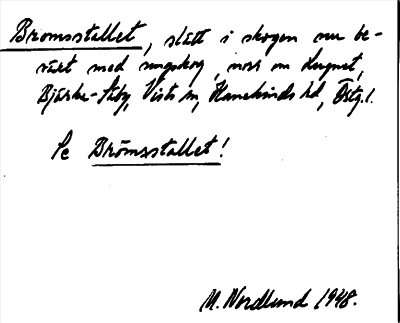 Bromsstallet, slått i skogen nu be-
växt med ungskog, norr om Lugnet,
Bjärka-Säby, Vists sn, Hanekinds hd, Östg. l.
Se Brömsstallet!
M. Nordlund 1948.